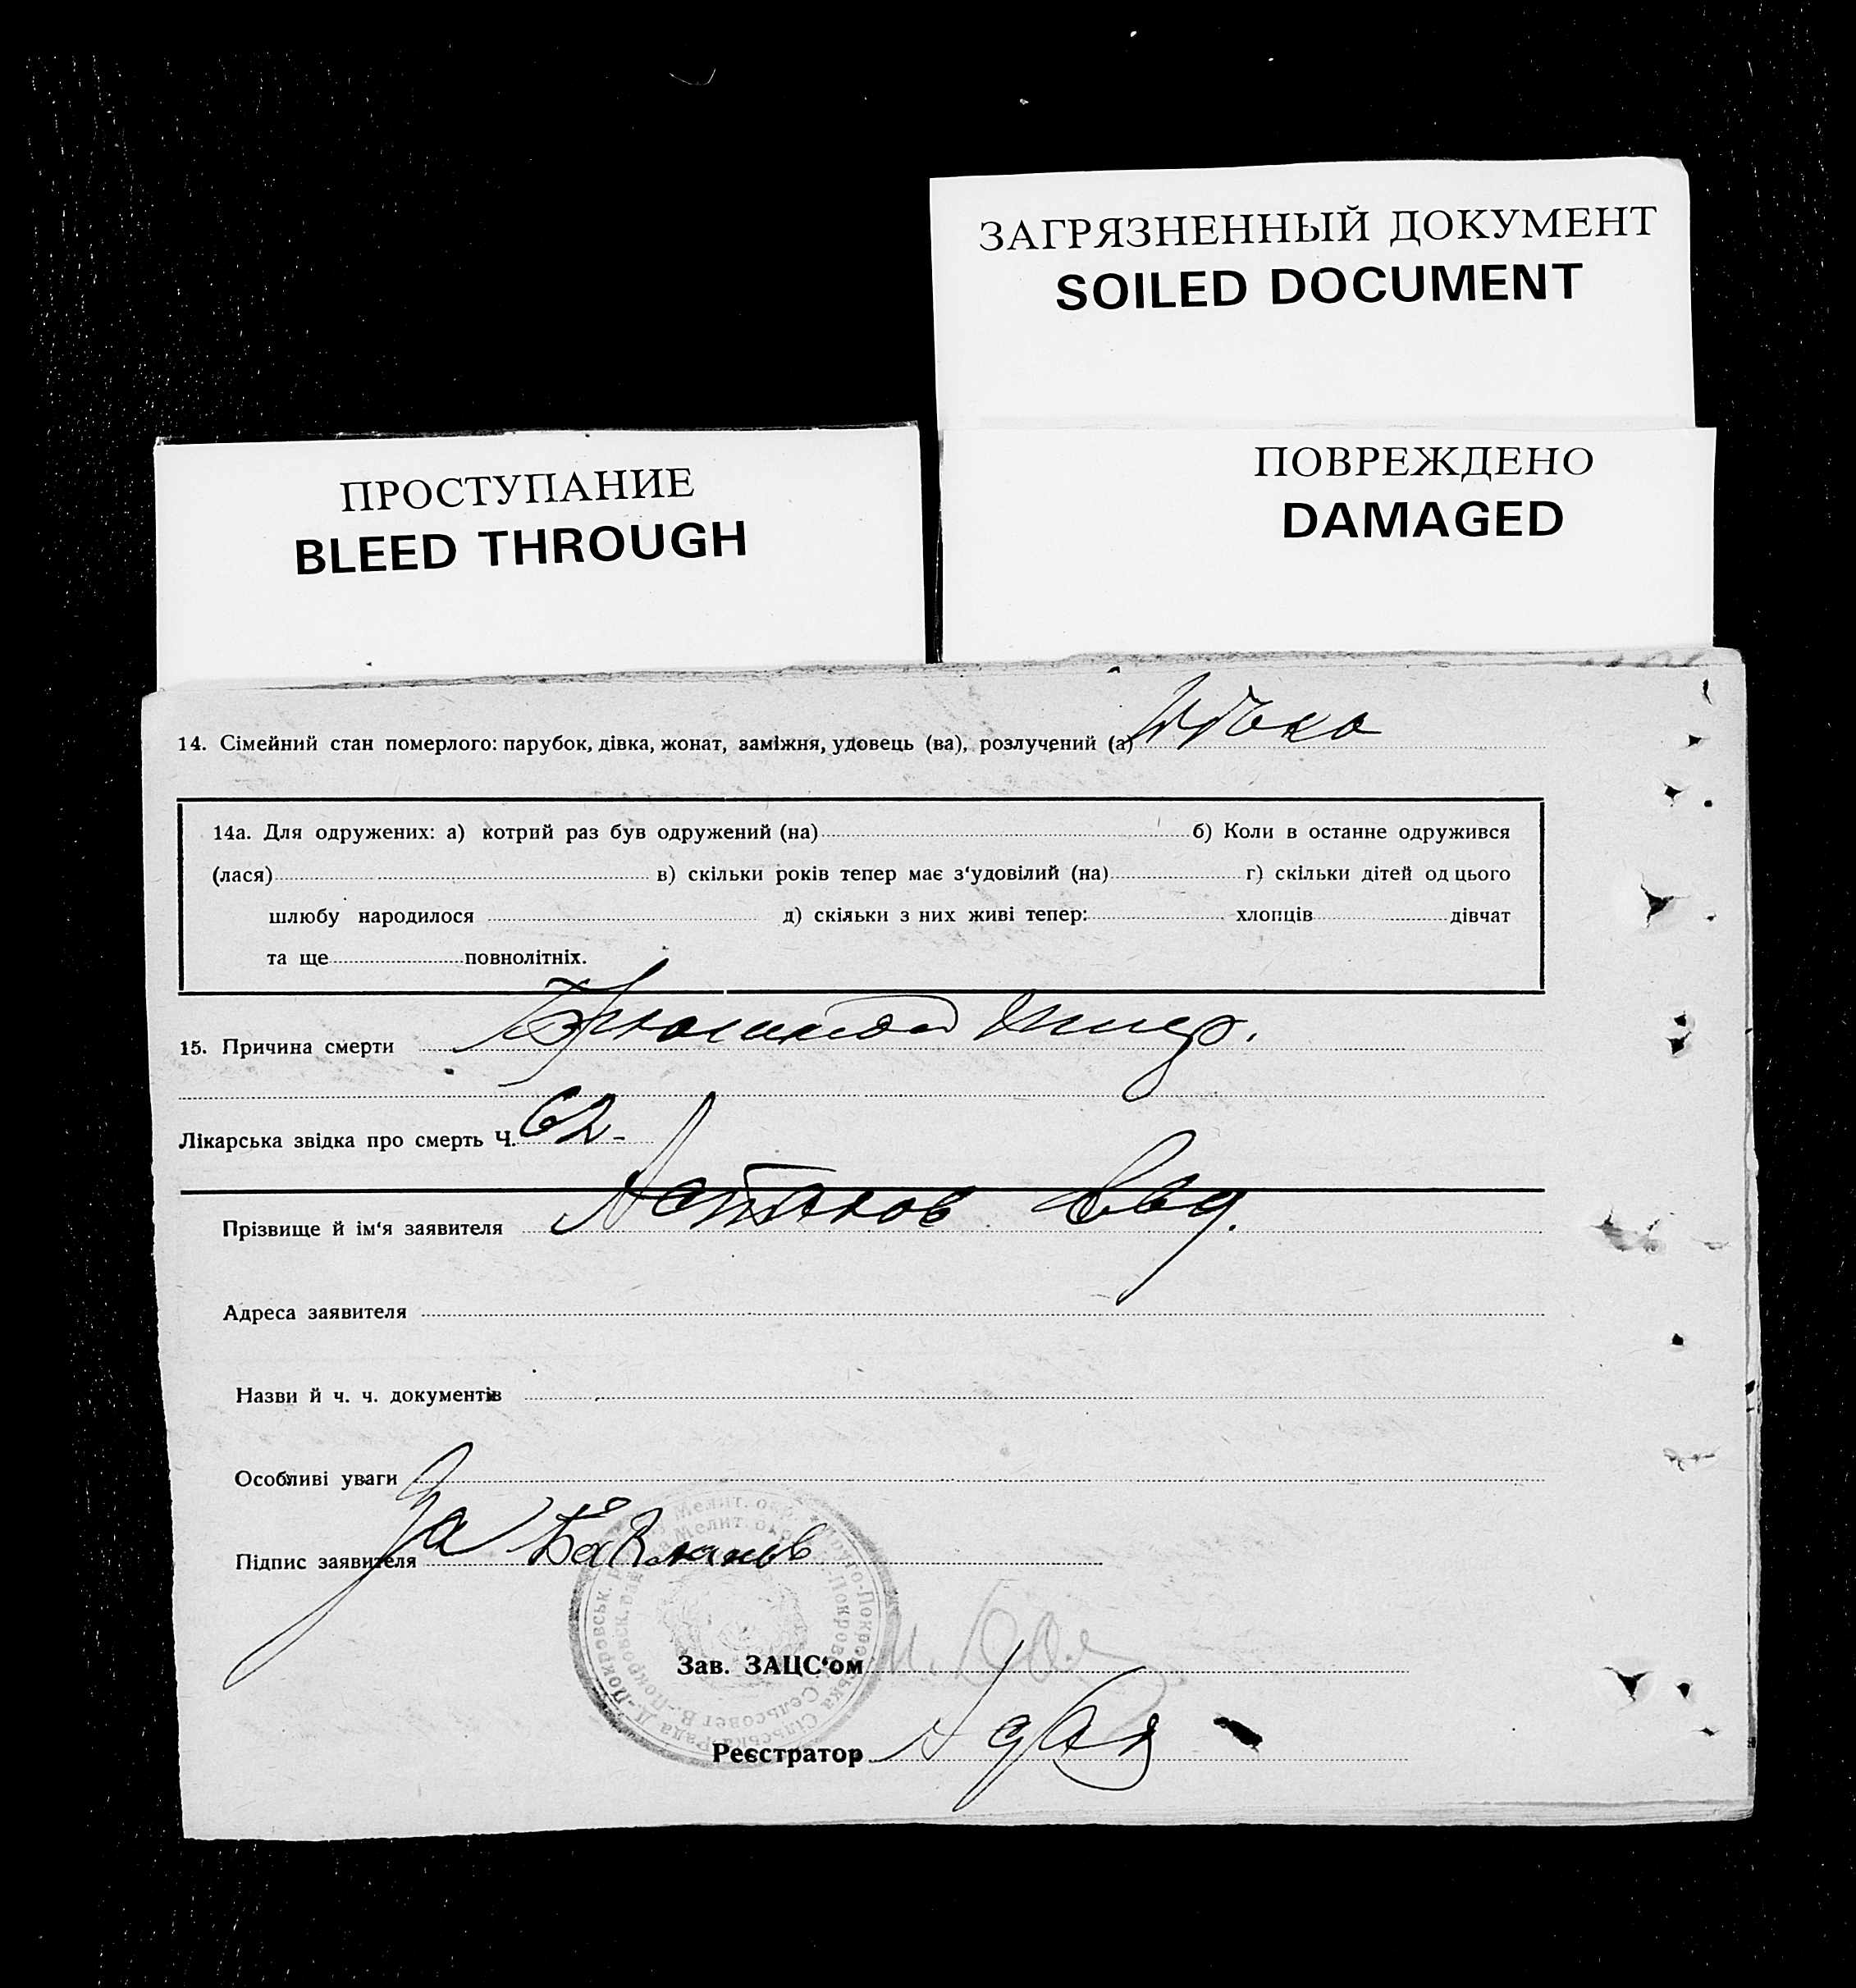 ЗАГРЯЗНЕННЫЙ ДОКУМЕНТ
SOILED DOCUMENT
ПРОСТУПАНИЕ
BLEED THROUGH
ПОВРЕЖДЕНО
DAMAGED
14. Сімейний стан померлого: парубок, дівка, жонат, заміжня, удовець (ва), розлучений (а)
14а. Для одружених: а) котрий раз був одружений (на) б) Коли в останне одружився
(лася) в) скільки років тепер має з‘удовілий (на) г) скільки дітей од цього
шлюбу народилося д) скільки з них живі тепер: хлопців дівчат
та ще повнолітніх.
15. Причина смерти Брюшной тиф.
Лікарська звідка про смерть Ч. 62-
Прізвище й ім‘я заявителя
Адреса заявителя
Назви й ч. ч. документів
Особливі уваги
Підпис заявителя За
Зав. ЗАЦС‘ом
Реєстратор